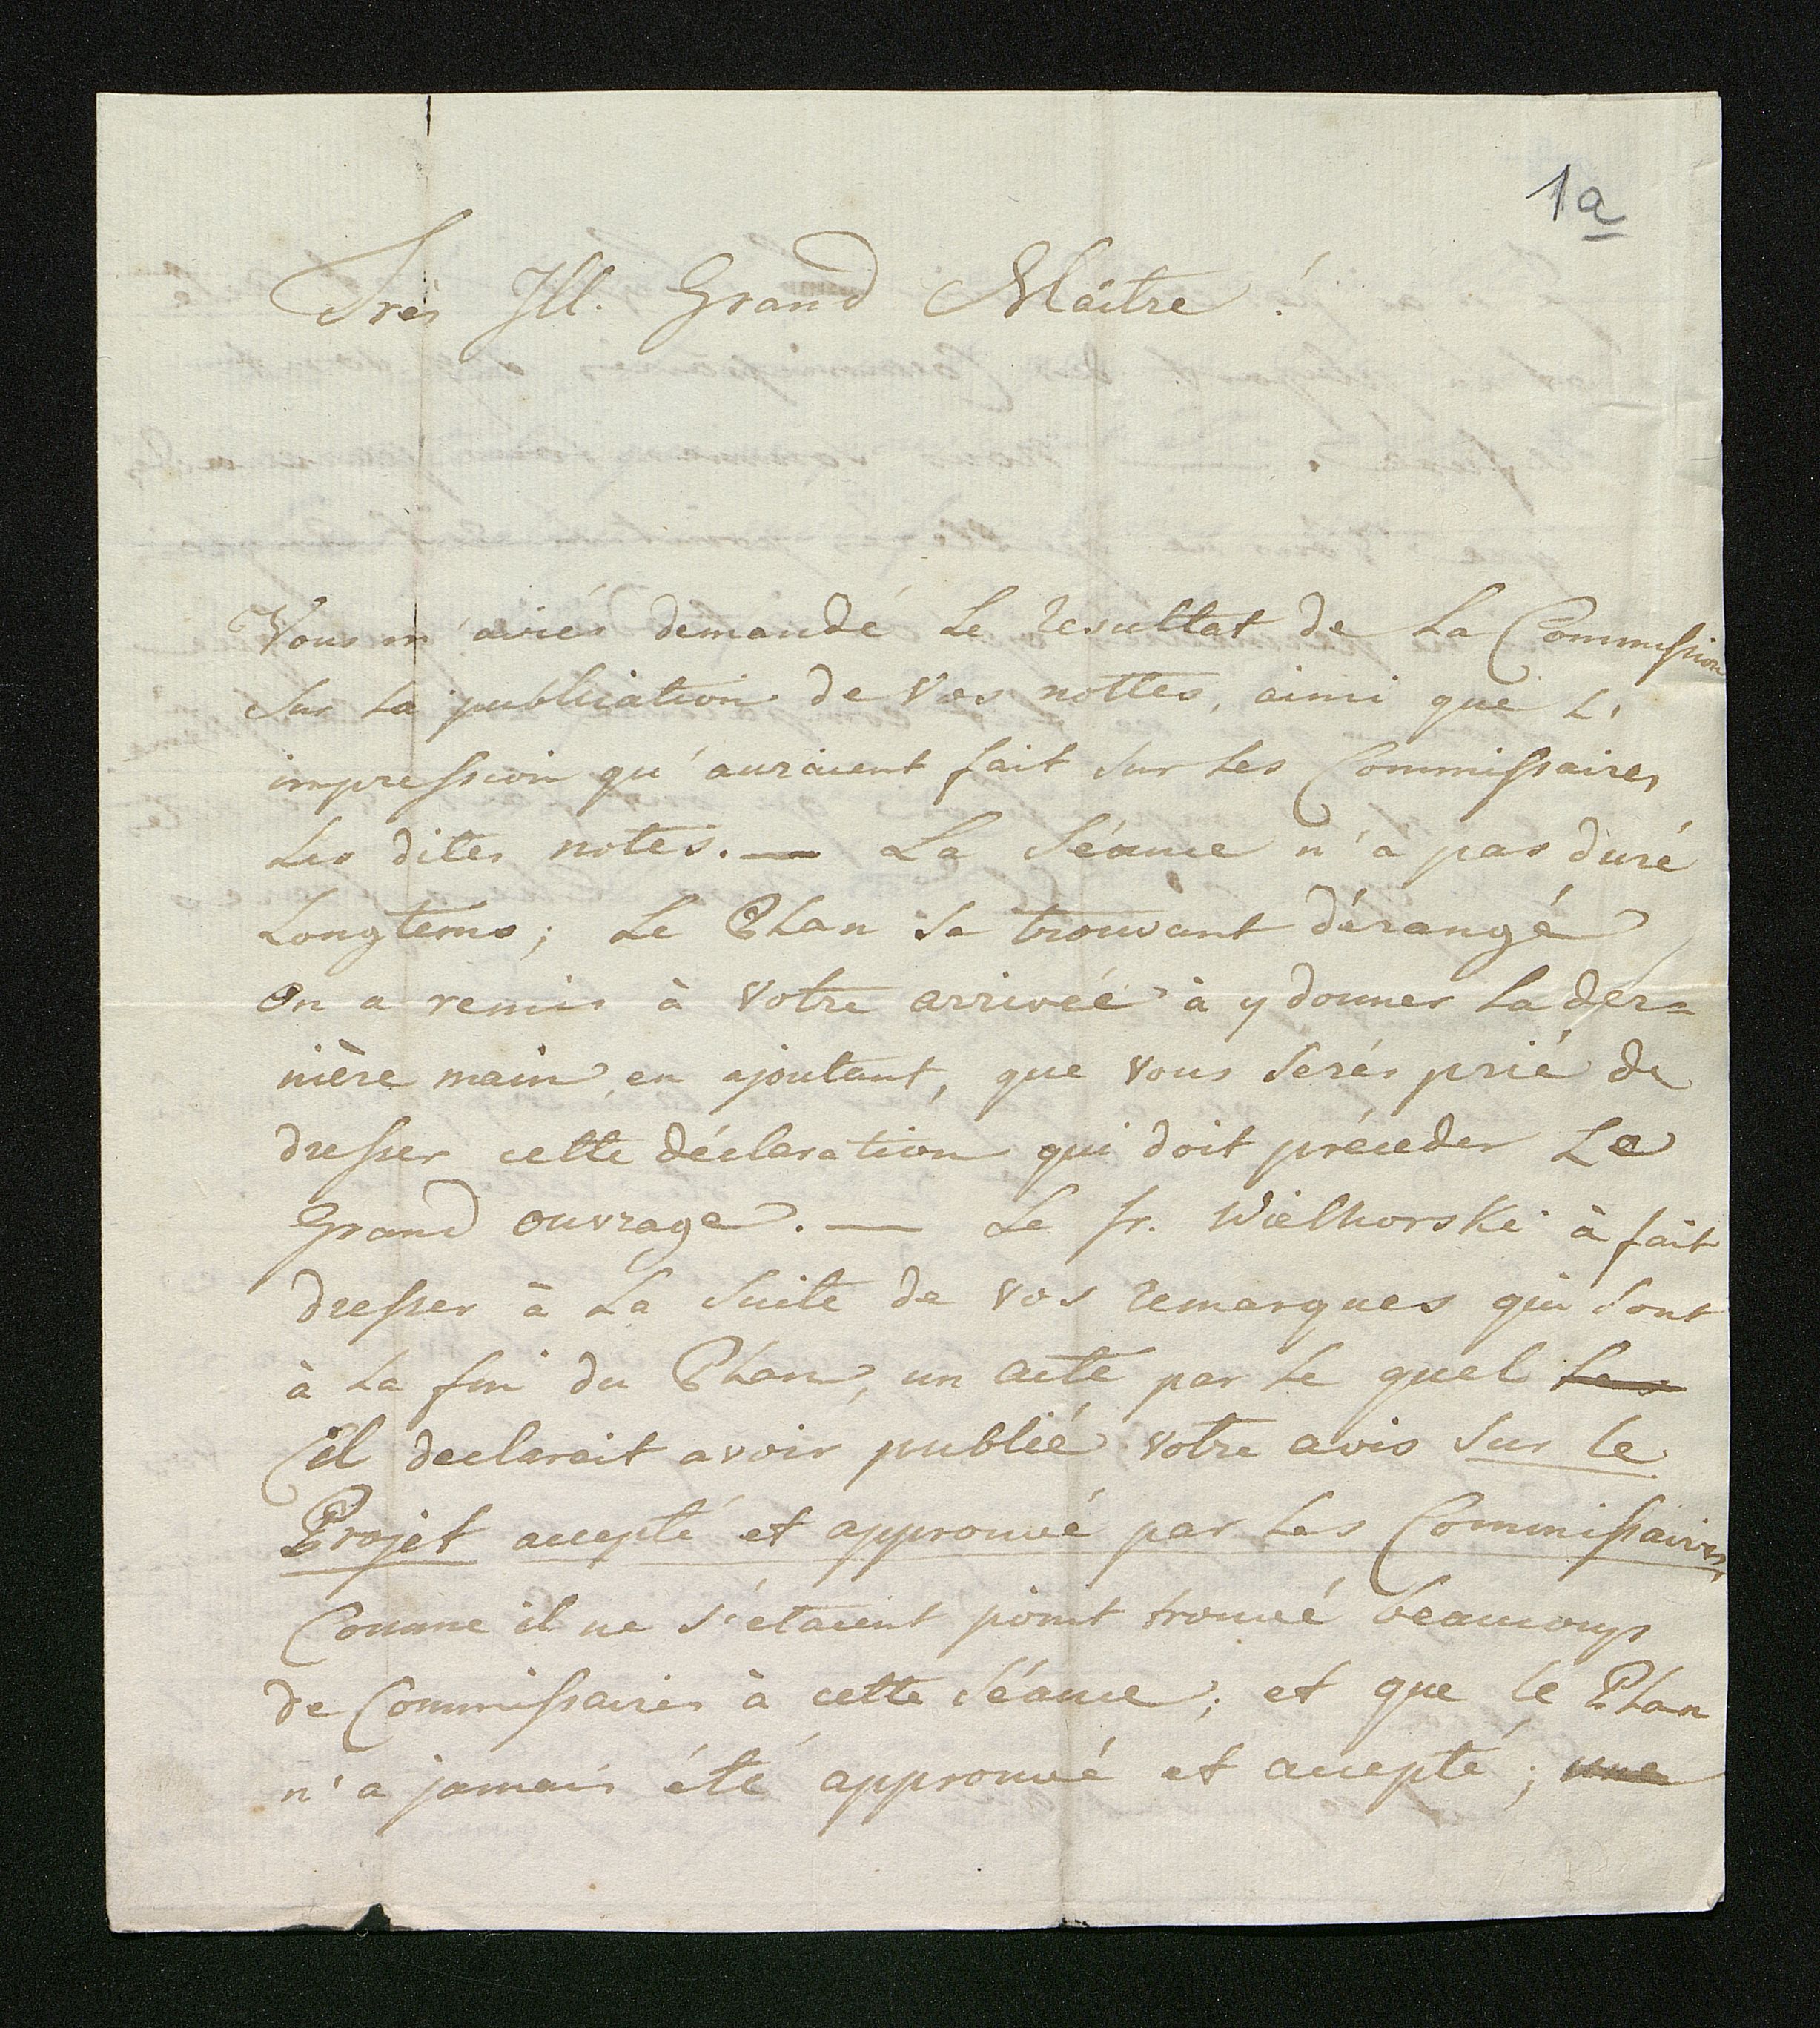 1a
Très Ill. Grand Maître !
Vous m'aviés demandé le resultat de la Commission
sur la publication de vos nottes, ainsi que l'
impression qu'auraient fait sur les Commissaires
les dites notes. — La Séance n'à pas duré
longtems ; le Plan se trouvant dérangé
on a remis à votre arriveé à y donner la der=
nière main, en ajoutant, que vous serés prié de
dresser cette déclaration qui doit préceder le
Grand ouvrage. — Le fr. Wielhorski à fait
dresser à la suite de vos remarques qui sont
à la fin du Plan, un acte par le quel les
il declarait avoir publié votre avis sur le
Projet accepté et approuvé par les Commissaires,
Comme il ne s'étaient point trouvé beaucoup
de Commissaires à cette Séance ; et que le Plan
n'a jamais été approuvé et accepté ; une